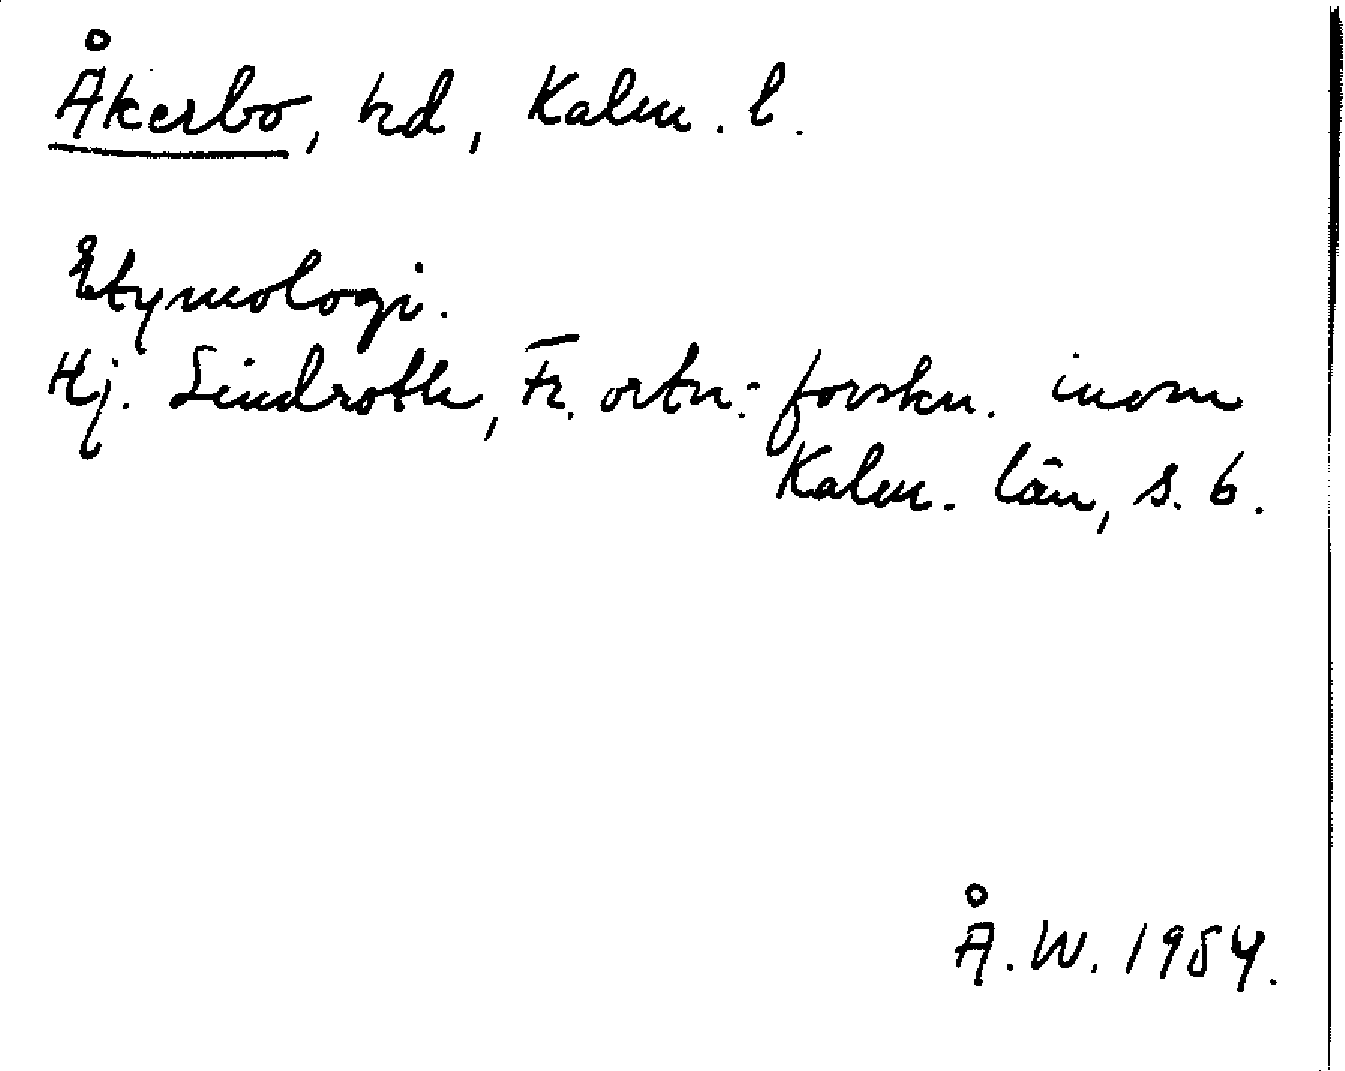 Åkerbo, hd, Kalm. l.
Etymologi.
Hj. Lindroth, Fr. ortn.-forskn. inom
Kalm. län, s. 6.
Å. W. 1954.